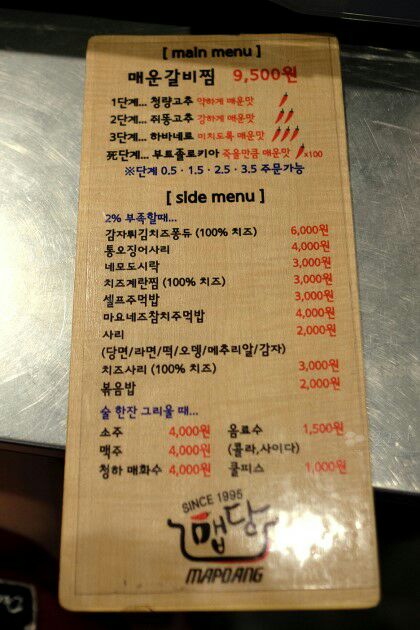 [ main menu ]
매운갈비찜 9,500원
1단계... 청량고추 약하게 매운맛
2단계... 쥐똥고추 강하게 매운맛
3단계... 하바네로 미치도록 매운맛
死단계... 부트졸로키아 죽을만큼 매운맛 x100
※단계 0.5 · 1.5 · 2.5 · 3.5 주문가능
[ side menu ]
2% 부족할때...
감자튀김치즈퐁듀 (100% 치즈) 6,000원
통오징어사리 4,000원
네모도시락 3,000원
치즈계란찜 (100% 치즈) 3,000원
셀프주먹밥 3,000원
마요네즈참치주먹밥 4,000원
사리 2,000원
(당면/라면/떡/오뎅/메추리알/감자)
치즈사리 (100% 치즈) 3,000원
볶음밥 2,000원
술 한잔 그리울 때...
소주 4,000원 음료수 1,500원
맥주 4,000원 (콜라,사이다)
청하 매화수 4,000원 쿨피스 1,000원
SINCE 1995
맵당
MAPDANG